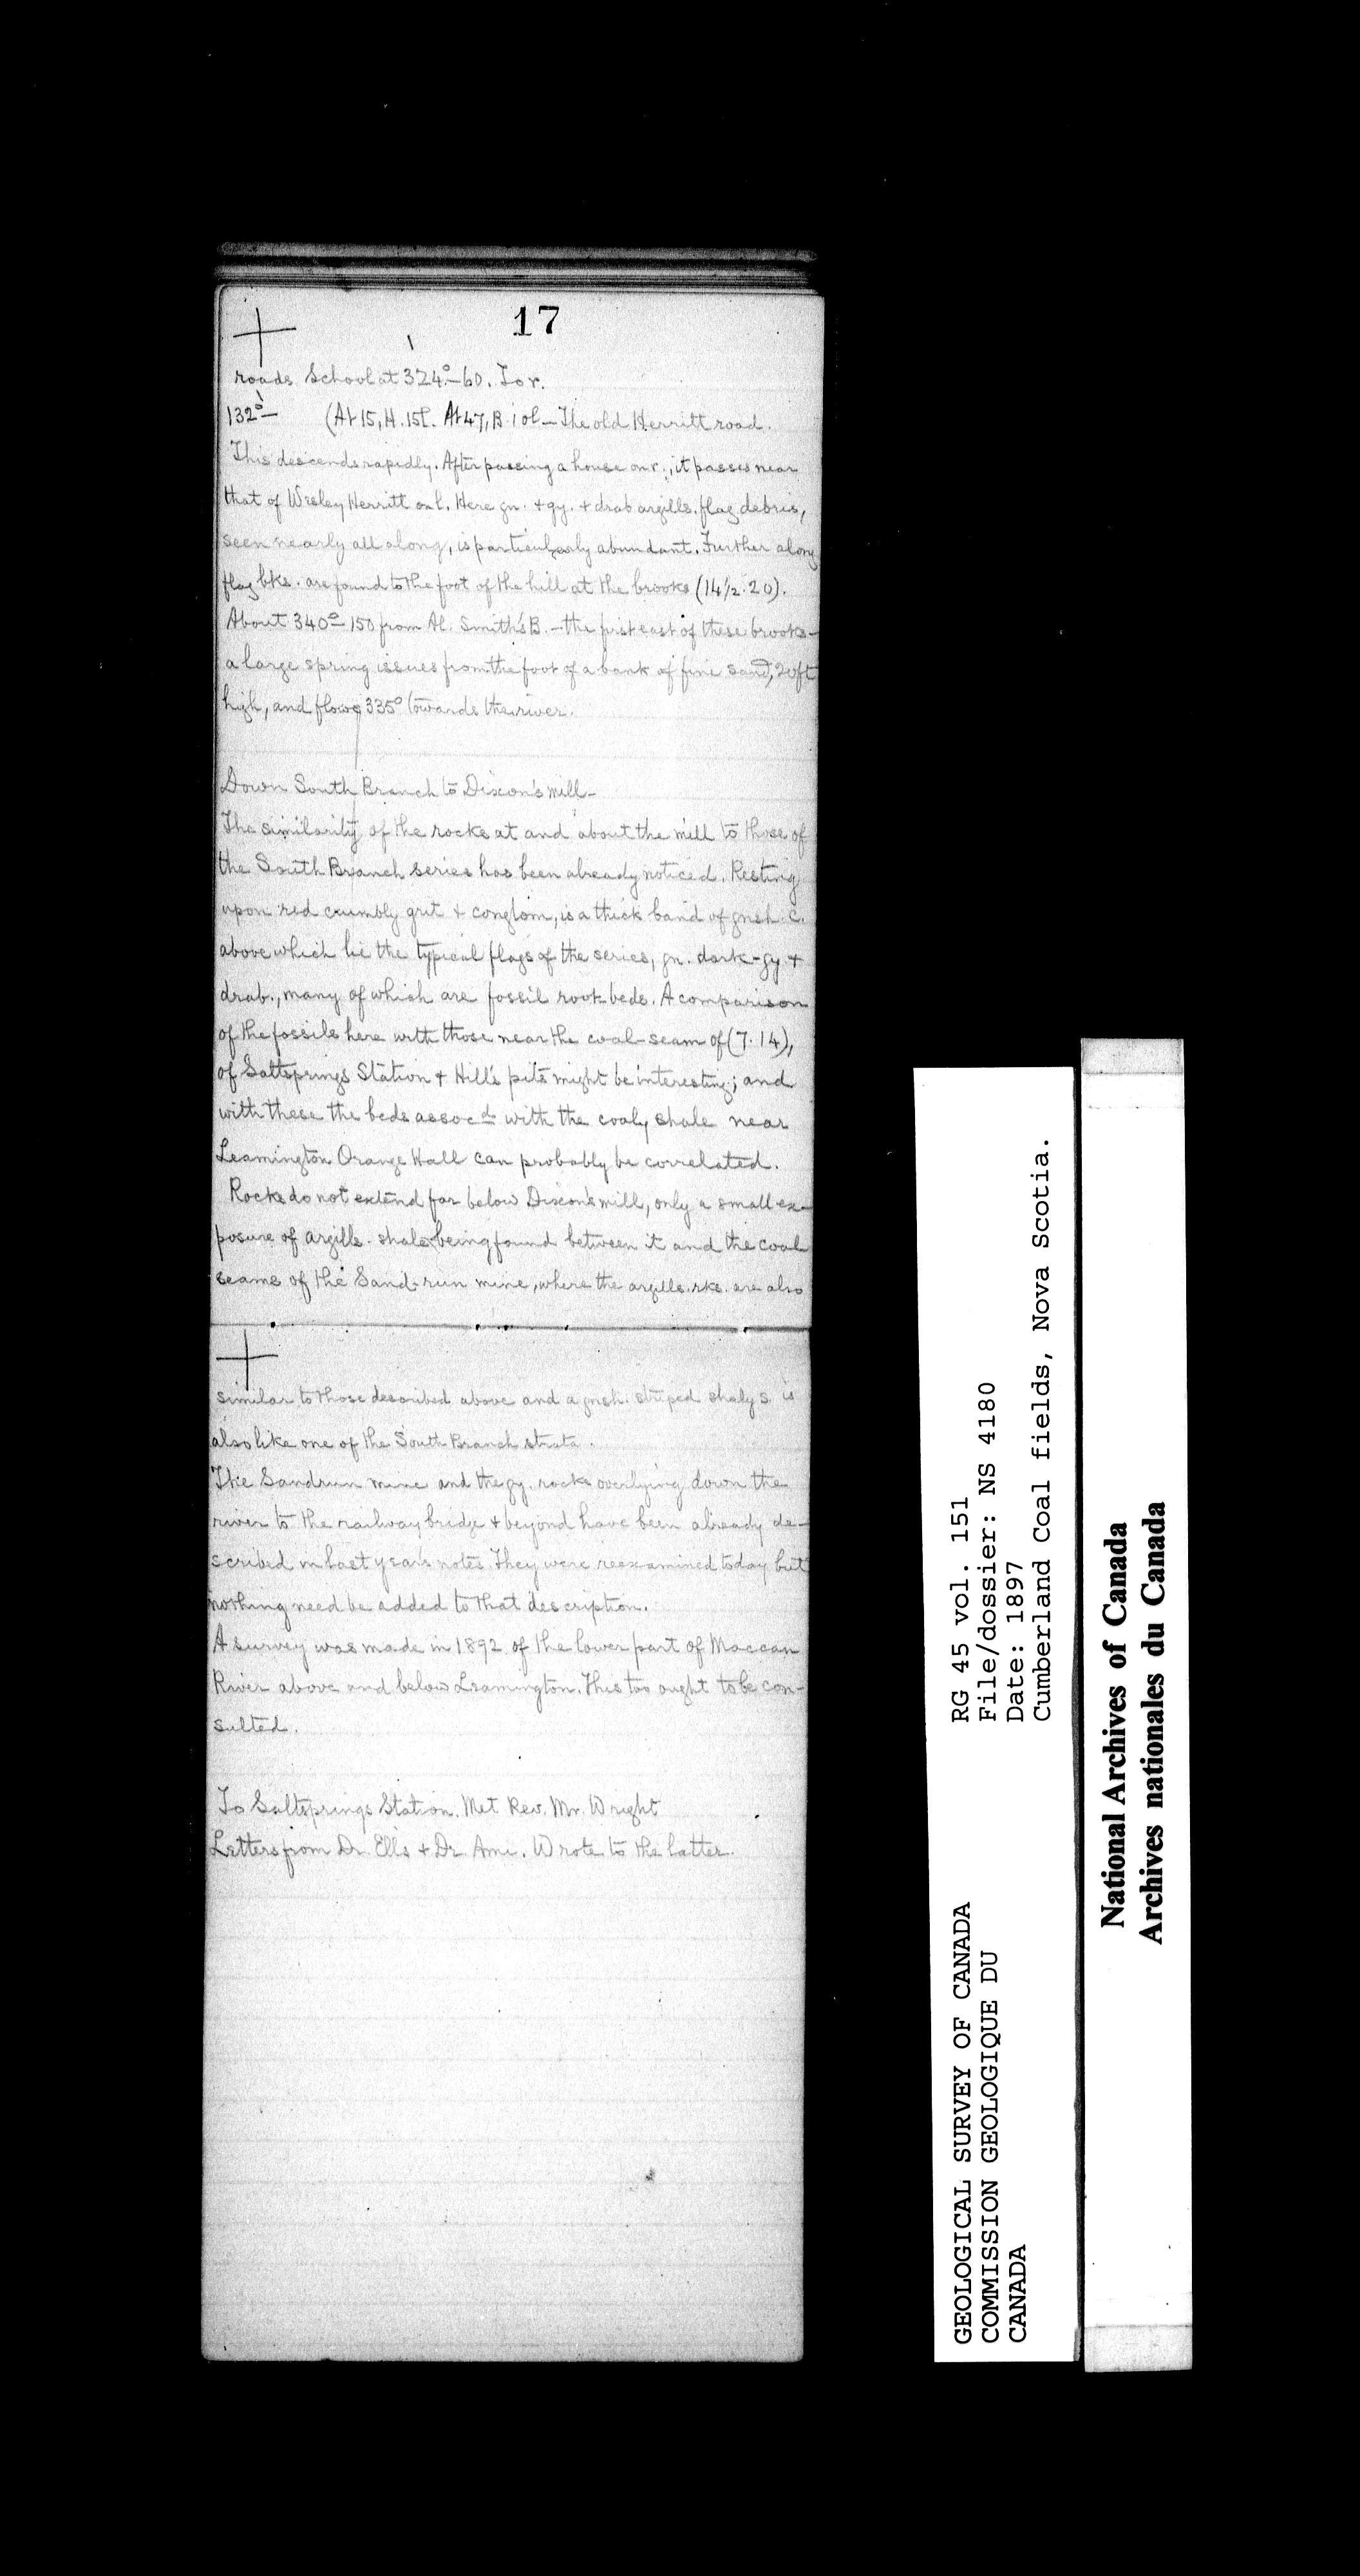 17
roads School at 324°–60. To r.
132°– (At 15, H. 15l. At 47, B. 10l – The old Herritt road.
This descends rapidly. After passing a house on r., it passes near
that of Wesley Herritt on l. Here gn. + gy. + drab argills. flag debris,
seen nearly all along, is particularly abundant. Further along
flag bks. are found to the foot of the hill at the brooks (14½.20).
About 340°–150 from Al. Smith's B. – the first east of these brooks –
a large spring issues from the foot of a bank of fine sand, 20ft
high, and flows 335° towards the river.
Down South Branch to Dixon's mill –
The similarity of the rocks at and about the mill to those of
the South Branch series has been already noticed. Resting
upon red crumbly grit + conglom, is a thick band of gnsh. c.
above which lie the typical flags of the series, gn. dark-gy. +
drab., many of which are fossil root-beds. A comparison
of the fossils here with those near the coal-seam of (7.14),
of Saltsprings Station + Hill's pits might be interesting; and
with these the beds assocd. with the coaly shale near
Leamington Orange Hall can probably be correlated.
Rocks do not extend far below Dixon's mill, only a small ex-
posure of argills. shales being found between it and the coal
seams of the Sand-run mine, where the argills. rks. are also
similar to those described above and a gnsh. striped shaly s. is
also like one of the South Branch strata.
The Sandrun mine and the gy. rocks overlying down the
river to the railway bridge + beyond have been already de-
scribed in last year's notes. They were reexamined today but
nothing need be added to that description.
A survey was made in 1892 of the lower part of Maccan
River above and below Leamington. This too ought to be con-
sulted.
To Saltsprings Station. Met Rev. Mr. Wright
Letters from Dr. Ells + Dr. Ami. Wrote to the latter.
GEOLOGICAL SURVEY OF CANADA
COMMISSION GEOLOGIQUE DU
CANADA
RG 45 vol. 151
File/dossier: NS 4180
Date: 1897
Cumberland Coal fields, Nova Scotia.
National Archives of Canada
Archives nationales du Canada